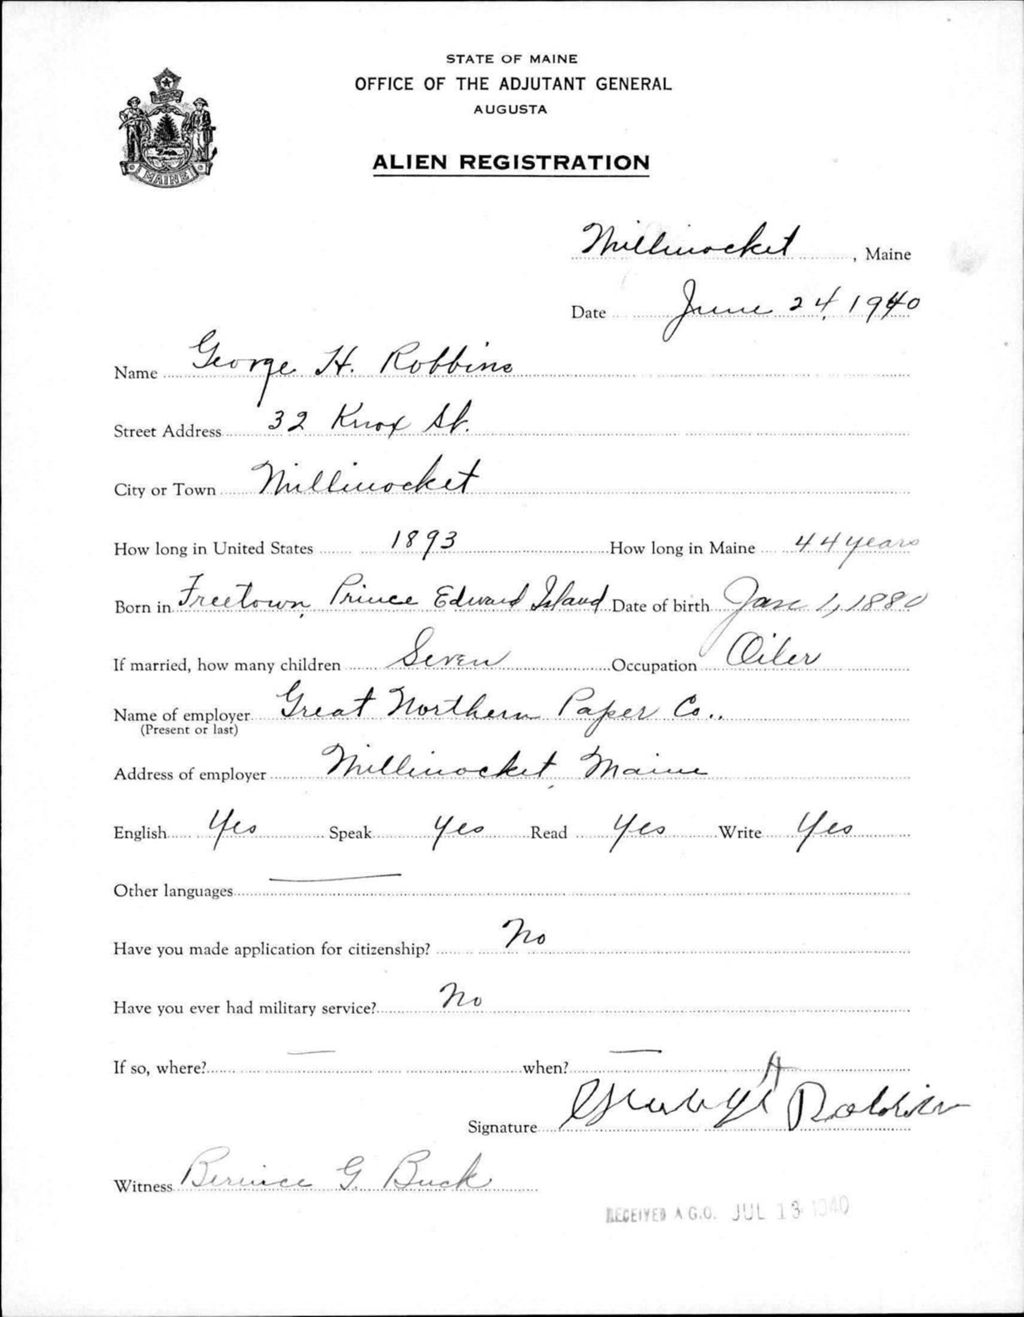 STATE OF MAINE
OFFICE OF THE ADJUTANT GENERAL
AUGUSTA
ALIEN REGISTRATION
MAINE
Millinocket, Maine
Date June 24, 1940
Name George H. Robbins
Street Address 32 Knox St.
City or Town Millinocket
How long in United States 1893 How long in Maine 44 years
Born in Freetown, Prince Edward Island Date of birth Jan 1, 1880
If married, how many children Seven Occupation Oiler
Name of employer Great Northern Paper Co.,
(Present or last)
Address of employer Millinocket, Maine
English Yes Speak Yes Read Yes Write Yes
Other languages
Have you made application for citizenship? No
Have you ever had military service? No
If so, where? when?
Signature George H Robbins
Witness Bernice G. Buck
RECEIVED A.G.O. JUL 13 1940